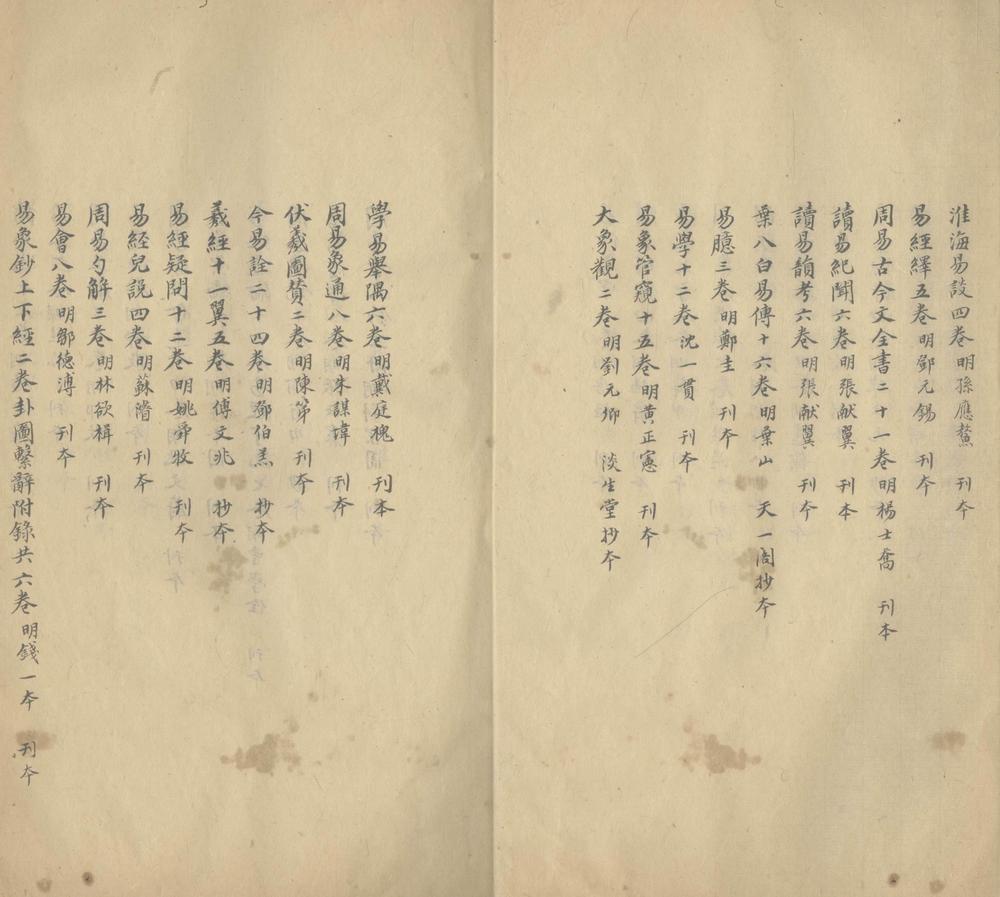 淮海易談四卷明孫應鰲 刊本
易經繹五卷明鄧元錫 刊本
周易古今文全書二十一卷明楊士喬 刊本
讀易紀聞六卷明張献翼 刊本
讀易韻考六卷明張献翼 刊本
葉八白易傳十六卷明葉山 天一阁抄本
易臆三卷明鄭圭 刊本
易學十二卷沈一貫 刊本
易象管窺十五卷明黄正憲 刊本
大象觀二卷明劉元卿 淡生堂抄本
學易舉隅六卷明戴庭槐 刊本
周易象通八卷明朱謀㙔 刊本
伏羲圖贊二卷明陳第 刊本
今易詮二十四卷明鄧伯羔 抄本
羲經十一翼五卷明傅文兆 抄本
易經疑問十二卷明姚舜牧 刊本
易經兒説四卷明蘇濬 刊本
周易勺解三卷明林欲楫 刊本
易會八卷明鄒德溥 刊本
易象鈔上下經二卷卦圖繫辭附錄共六卷明錢一本 刊本